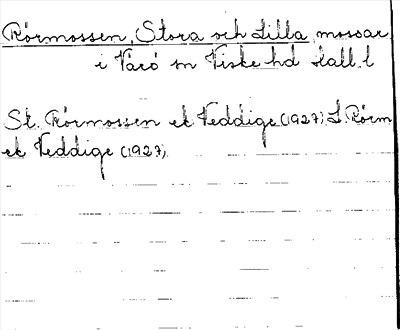 Rörmossen, Stora och Lilla, mossar
i Värö sn Viske hd Hall. l
St. Rörmossen ek Veddige (1927) L. Rörm
ek Veddige (1927).